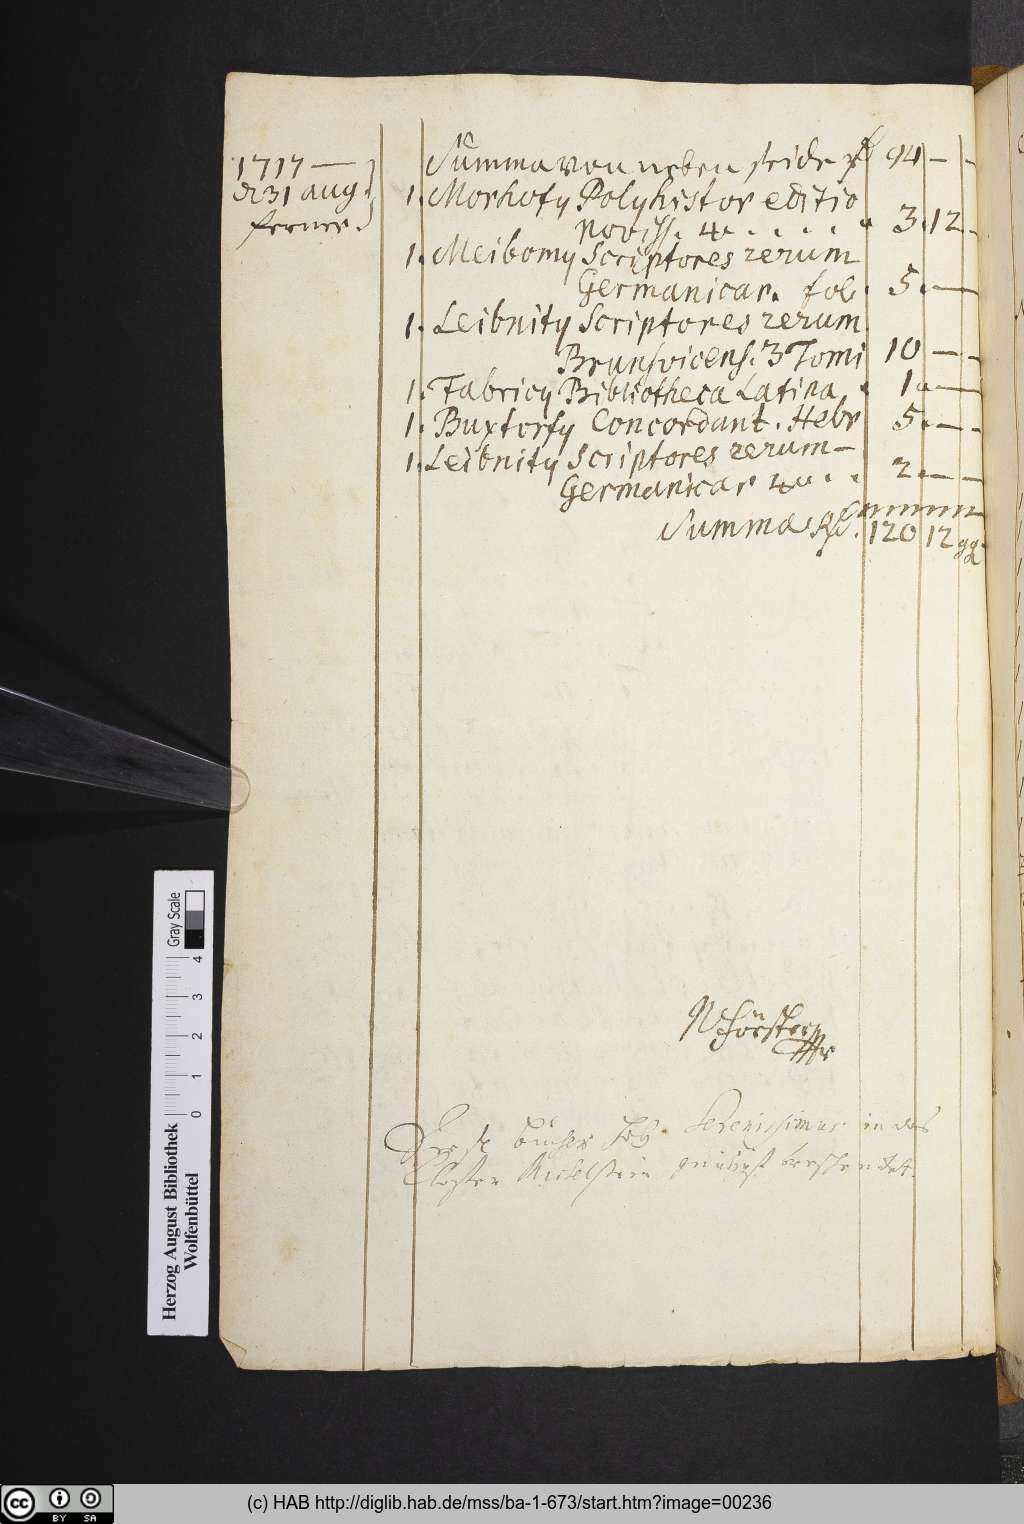 1717 —
d 31 aug.
ferner.
Summa von neben seide 94 — -
1. Morhofy Polyhistor editio
noviss. 4. . . . . 3. 12. -
1. Meibomy Scriptores rerum
Germanicar. fol. 5. — -
1. Leibnity Scriptores rerum
Brunsvicens. 3 Tomi 10 — -
1. Fabricy Bibliotheca Latina . 1. — -
1. Buxtorfy Concordant. Hebr 5. — -
1. Leibnity Scriptores rerum —
Germanicar 4to . . 2. — -
Summa 120 12 gg
Förster
Bücher hab Serenissimus in das
Closter verschendet.
Herzog August Bibliothek
Wolfenbüttel
0 1 2 3 4
Gray Scale
cc BY SA
(c) HAB http://diglib.hab.de/mss/ba-1-673/start.htm?image=00236